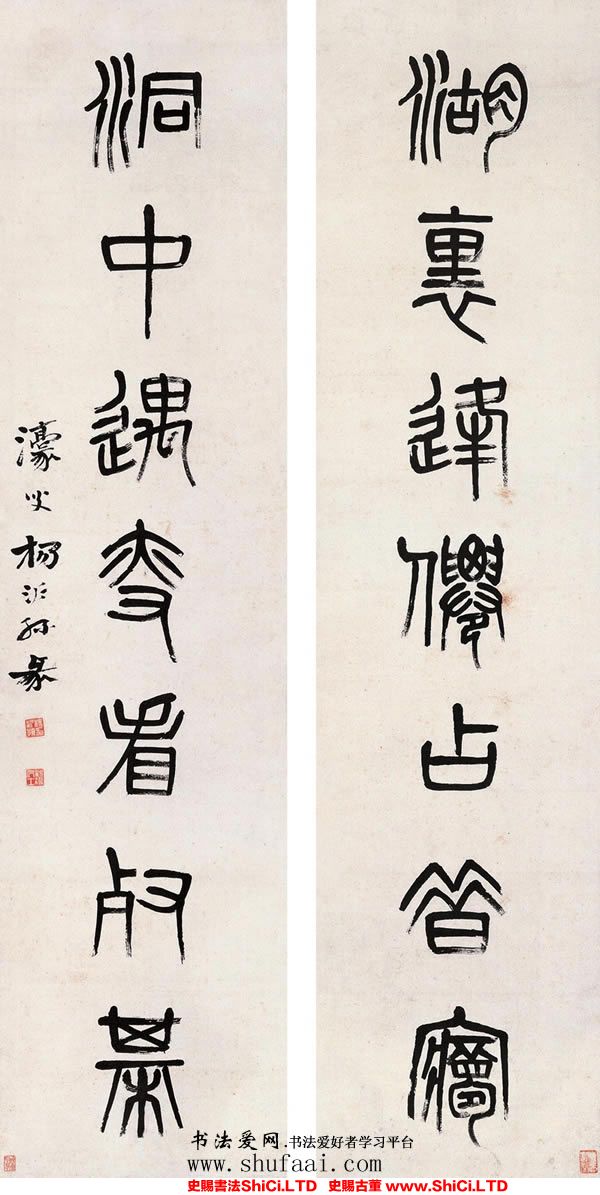 湖裏逢僊占昔㝱
洞中遇叟看𣦼棊
濠叟楊沂孫篆
书法爱网.书法爱好者学习平台
www.shufaai.com
史賜書法ShiCi.LTD 史賜古董ShiCi.LTD